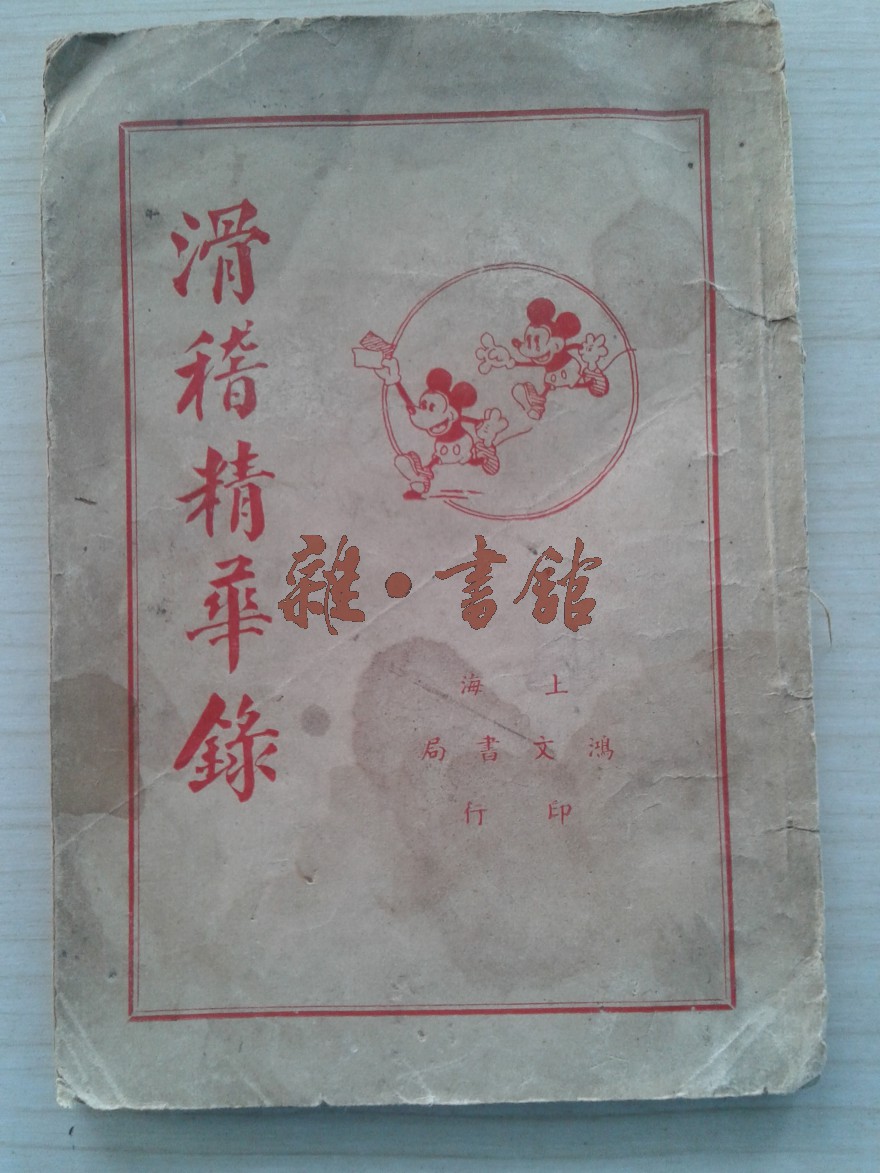 滑稽精華錄
雜·書館
上海
鴻文書局
印行